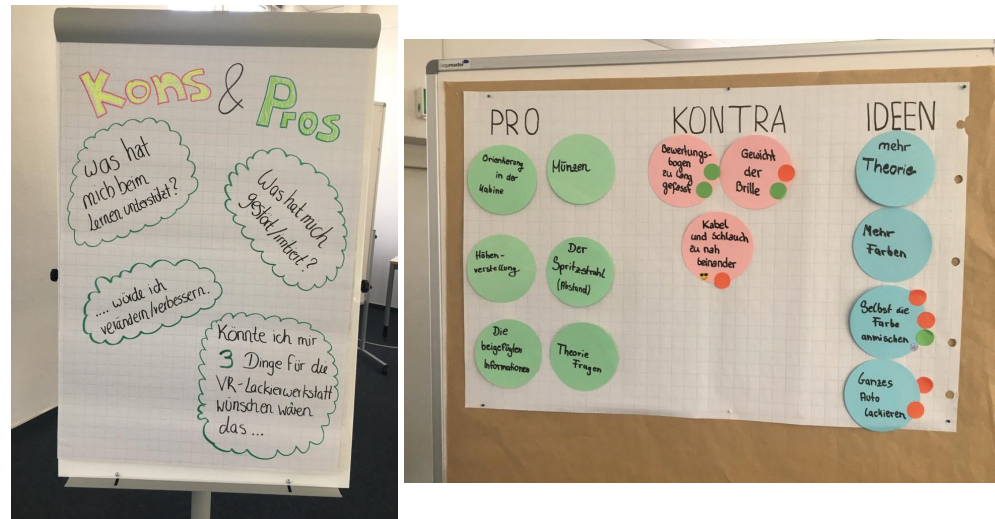 Kons & Pros
Was hat
mich beim
Lernen unterstützt?
Was hat mich
gestört/irritiert?
.... würde ich
verändern/verbessern.
Könnte ich mir
3 Dinge für die
VR-Lackierwerkstatt
wünschen wären
das ...
PRO
Orientierung
in der
Kabine
Münzen
Höhen-
verstellung
Der
Spritzstrahl
(Abstand)
Die
beigefügten
Informationen
Theorie
Fragen
KONTRA
Bewertungs-
bogen
zu lang
gefasst
Gewicht
der
Brille
Kabel
und Schlauch
zu nah
beinander
IDEEN
mehr
Theorie
Mehr
Farben
Selbst die
Farbe
anmischen
Ganzes
Auto
lackieren